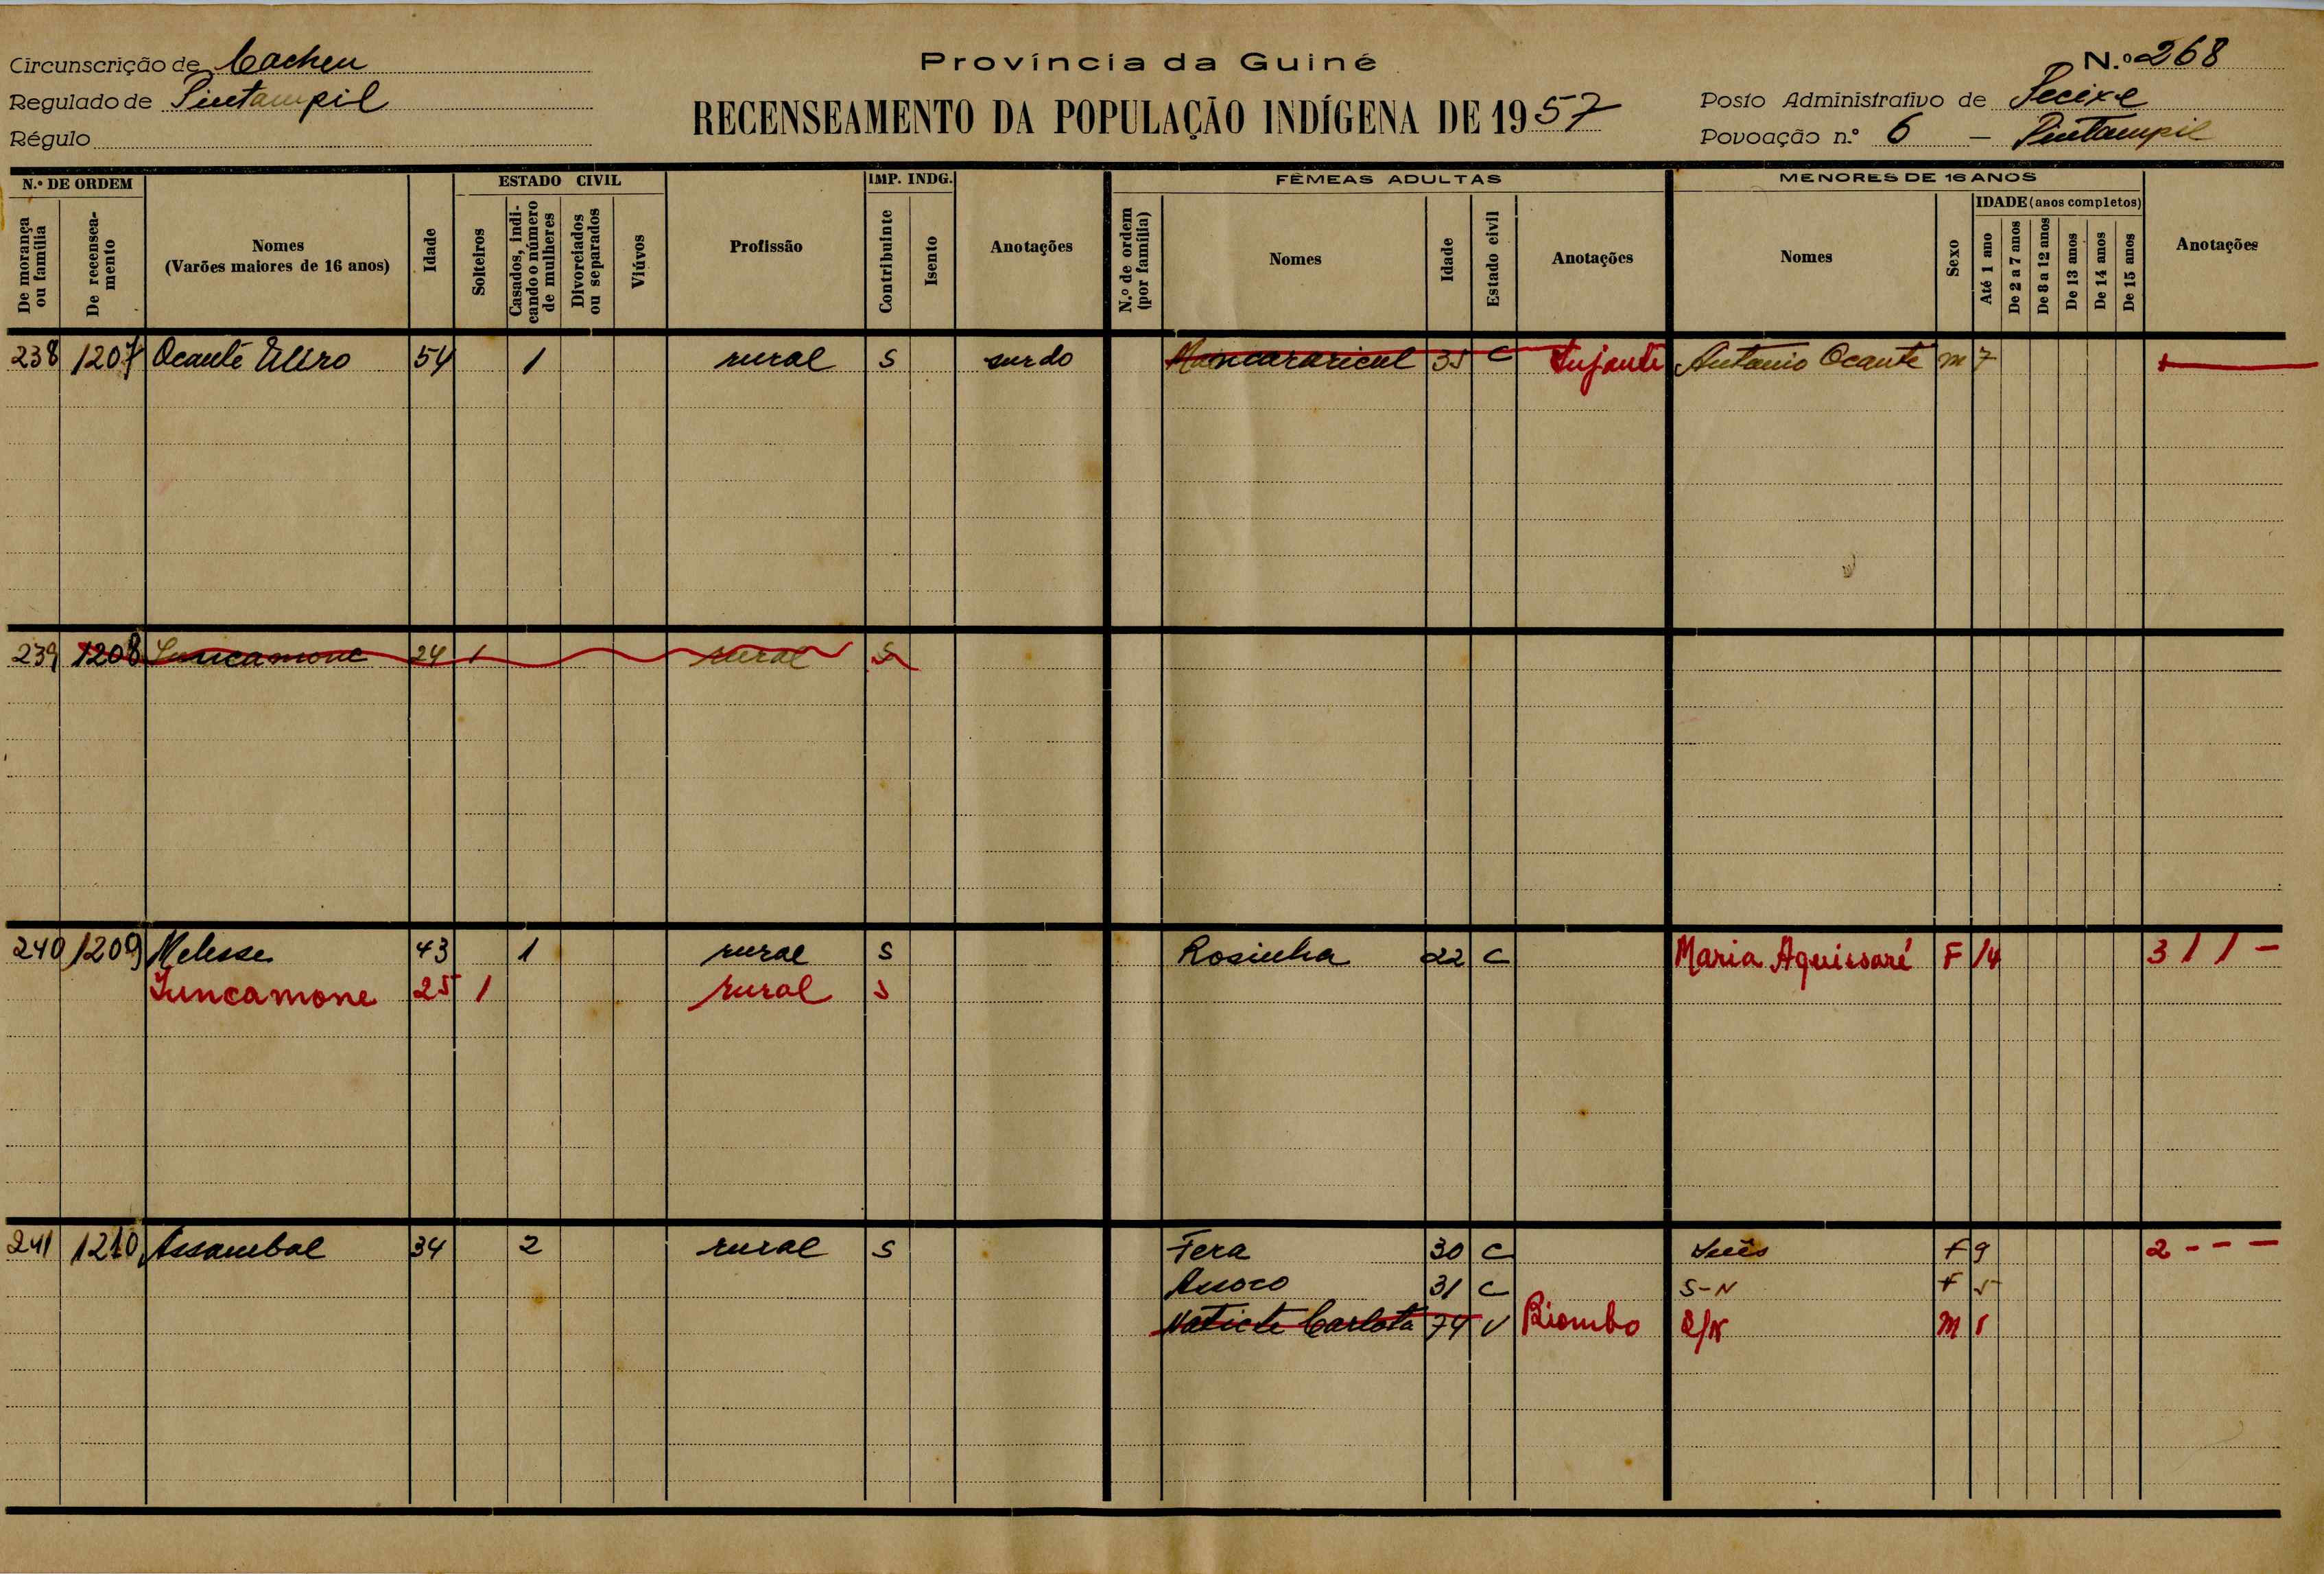 Circunscrição de Cacheu
Regulado de Pintampil
Régulo
Província da Guiné
RECENSEAMENTO DA POPULAÇÃO INDÍGENA DE 1957
N.º 268
Posto Administrativo de Pecixe
Povoação n.º 6 – Pintampil
N.º DE ORDEM
De morança ou família
De recenseamento
Nomes
(Varões maiores de 16 anos)
Idade
ESTADO CIVIL
Solteiros
Casados, indicando o número de mulheres
Divorciados ou separados
Viúvos
Profissão
IMP. INDG.
Contribuinte
Isento
Anotações
FÊMEAS ADULTAS
N.º de ordem (por família)
Nomes
Idade
Estado civil
Anotações
MENORES DE 16 ANOS
Nomes
Sexo
IDADE (anos completos)
Até 1 ano
De 2 a 7 anos
De 8 a 12 anos
De 13 anos
De 14 anos
De 15 anos
Anotações
238 1207 Ocanté 54 1 rural S surdo 35 C António Ocante M 7
239 1208 Juncamone 24 1 rural S
240 1209 Melisse 43 1 rural S Rosinha 22 C Maria F 14 3 1 1 –
Juncamone 25 1 rural S
241 1210 Assambal 34 2 rural S Fera 30 C Inês F 9 2 - - -
31 C S-N F 5
Carlota 74 V Biombo S/N M 1